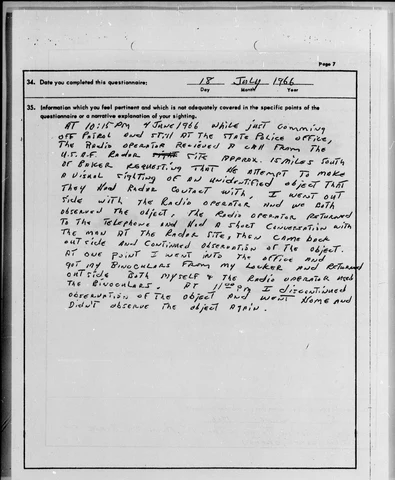 Page 7
34. Date you completed this questionnaire: 18 July 1966
Day Month Year
35. Information which you feel pertinent and which is not adequately covered in the specific points of the
questionnaire or a narrative explanation of your sighting.
AT 10:15 PM 4 JUNE 1966 while just comming
off Patrol and still AT the STATE Police office,
The Radio operator Recieved A CAll From The
U.S.A.F. RADAR SITE Approx. 15 miles South
of BAKER Requesting That He Attempt to make
A Visual Sighting of an unidentified object That
They Had Radar Contact with, I went out
side with the Radio operator and we both
observed the object, The Radio operator Returned
To the Telephone and Had A Short Conversation with
The man AT the RADAR SITE, Then came back
outside and Continued observation of the object.
AT one point I went into the office and
got my Binoculars From my Locker and Returned
outside Both myself & the Radio operator used
the Binoculars. AT 11:00 PM I discontinued
observation of the object and went Home and
Didn't observe the object again.